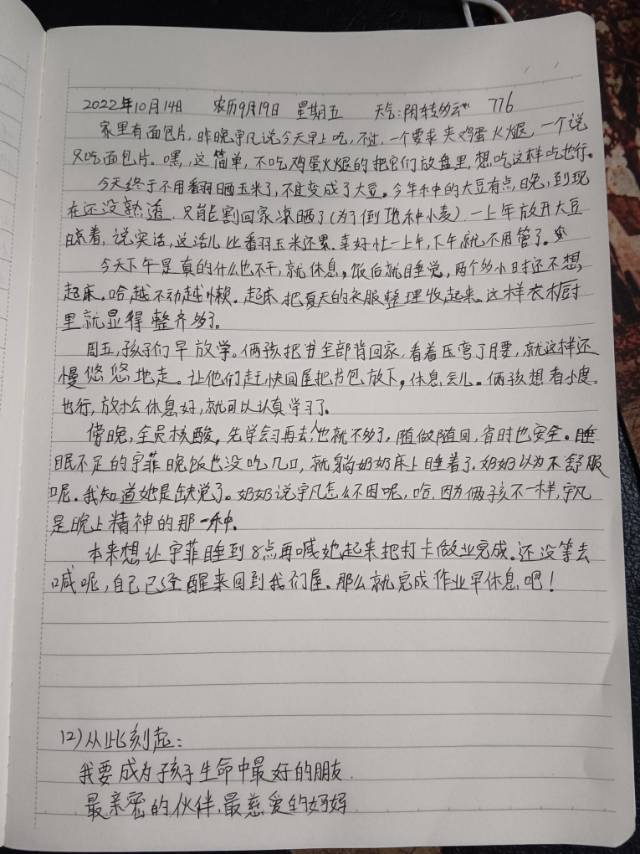 2022年10月14日 农历9月19日 星期五 天气:阴转多云 776
家里有面包片，昨晚宇凡说今天早上吃，不过，一个要求夹鸡蛋火腿，一个说
只吃面包片。嘿，这简单，不吃鸡蛋火腿的把它们放盘里，想吃这样吃也行。
今天终于不用翻晒玉米了，不过变成了大豆。今年种的大豆有点晚，到现
在还没熟透，只能割回家凉晒了(为了倒地种小麦)，一上午放开大豆
晾着，说实话，这活儿比翻玉米还累。幸好忙一上午，下午就不用管了。
今天下午是真的什么也不干，就休息，饭后就睡觉，两个多小时还不想
起床。哈，越不动越懒。起床把夏天的衣服整理收起来。这样衣橱
里就显得整齐多了。
周五，孩子们早放学。俩孩把书全部背回家，看着压弯了腰，就这样还
慢悠悠地走。让他们赶快回屋把书包放下，休息会儿。俩孩想看小度
也行，放松休息好，就可以认真学习了。
傍晚，全员核酸，先学会习再去，人也就不多了，随做随回，省时也安全。睡
眠不足的宇菲晚饭也没吃几口，就躺奶奶床上睡着了。奶奶以为不舒服
呢。我知道她是缺觉了。奶奶说宇凡怎么不困呢，哈，因为俩孩不一样，宇凡
是晚上精神的那一种。
本来想让宇菲睡到8点再喊她起来把打卡做业完成。还没等去
喊呢，自己已经醒来回到我们屋。那么就完成作业早休息吧！
12)从此刻起:
我要成为孩子生命中最好的朋友
最亲密的伙伴，最慈爱的妈妈